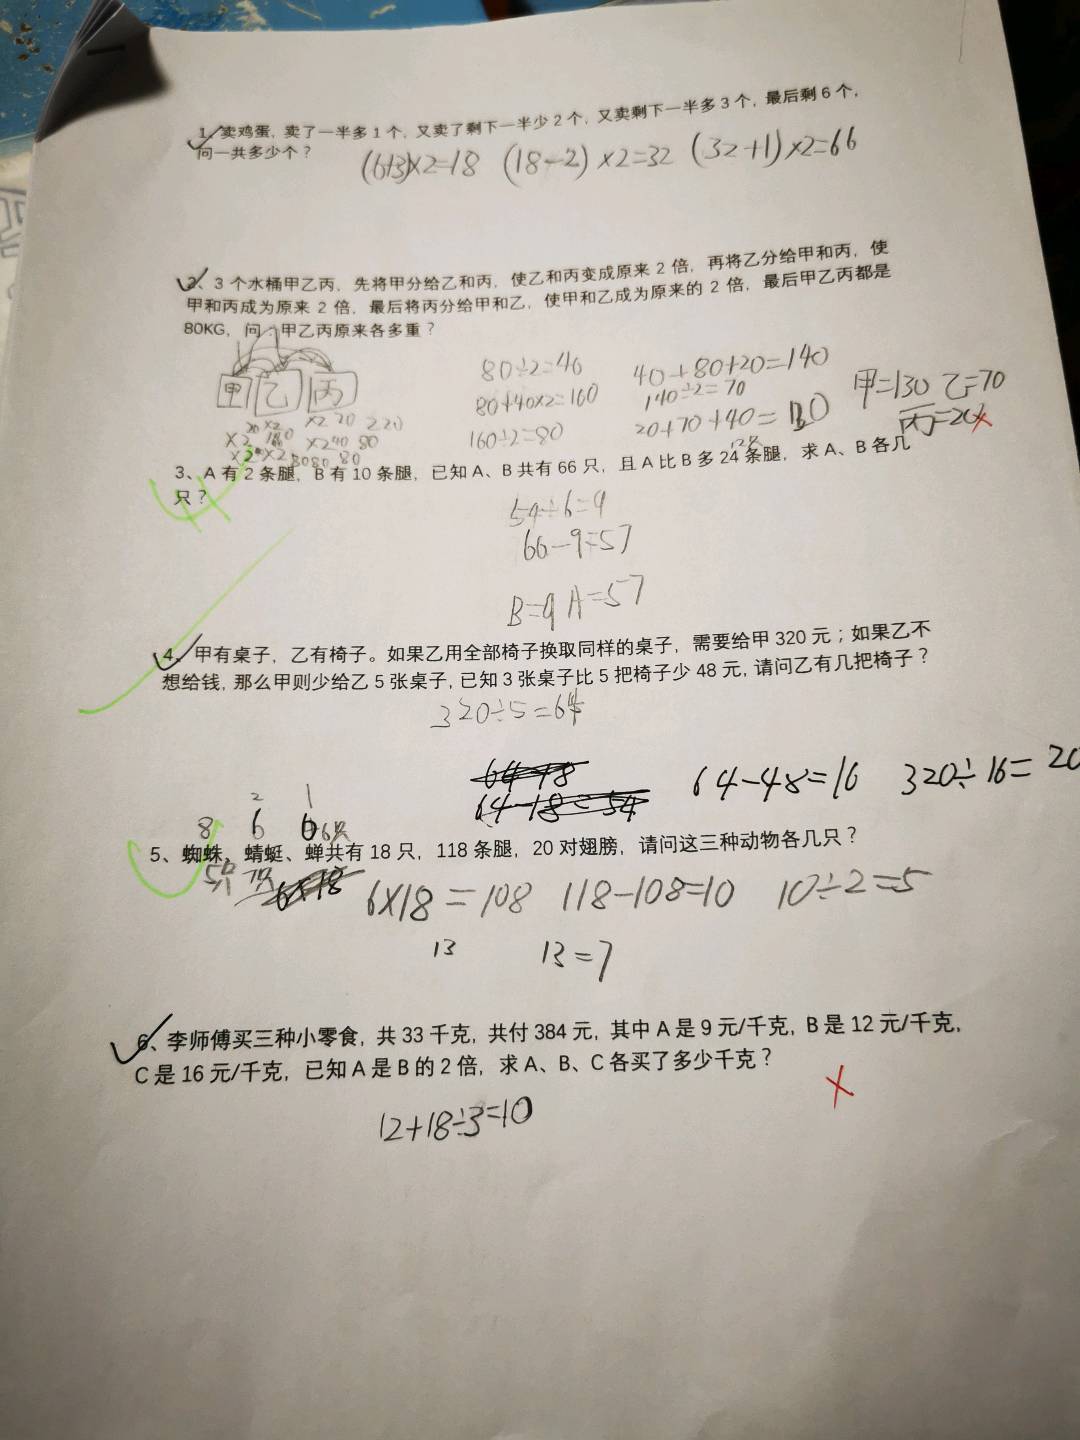 1、卖鸡蛋，卖了一半多1个，又卖了剩下一半少2个，又卖剩下一半多3个，最后剩6个，
问一共多少个？
(6+3)×2=18 (18-2)×2=32 (32+1)×2=66
2、3个水桶甲乙丙，先将甲分给乙和丙，使乙和丙变成原来2倍，再将乙分给甲和丙，使
甲和丙成为原来2倍，最后将丙分给甲和乙，使甲和乙成为原来的2倍，最后甲乙丙都是
80KG，问：甲乙丙原来各多重？
甲 乙 丙
80÷2=40 40+80+20=140
80+40×2=160 140÷2=70
160÷2=80 20+70+40=130
甲=130 乙=70
丙=20
3、A有2条腿，B有10条腿，已知A、B共有66只，且A比B多24条腿，求A、B各几
只？
54÷6=9
66-9=57
B=9 A=57
4、甲有桌子，乙有椅子。如果乙用全部椅子换取同样的桌子，需要给甲320元；如果乙不
想给钱，那么甲则少给乙5张桌子，已知3张桌子比5把椅子少48元，请问乙有几把椅子？
320÷5=64
64-48=16 320÷16=20
8 6 6
5、蜘蛛、蜻蜓、蝉共有18只，118条腿，20对翅膀，请问这三种动物各几只？
5只 7只
6×18=108 118-108=10 10÷2=5
13 13=7
6、李师傅买三种小零食，共33千克，共付384元，其中A是9元/千克，B是12元/千克，
C是16元/千克，已知A是B的2倍，求A、B、C各买了多少千克？
12+18÷3=10